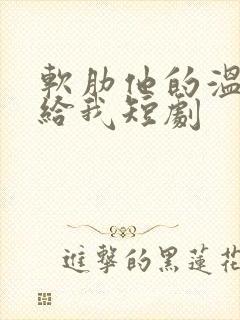 軟肋他的溫
給我短劇
進擊的黑蓮花